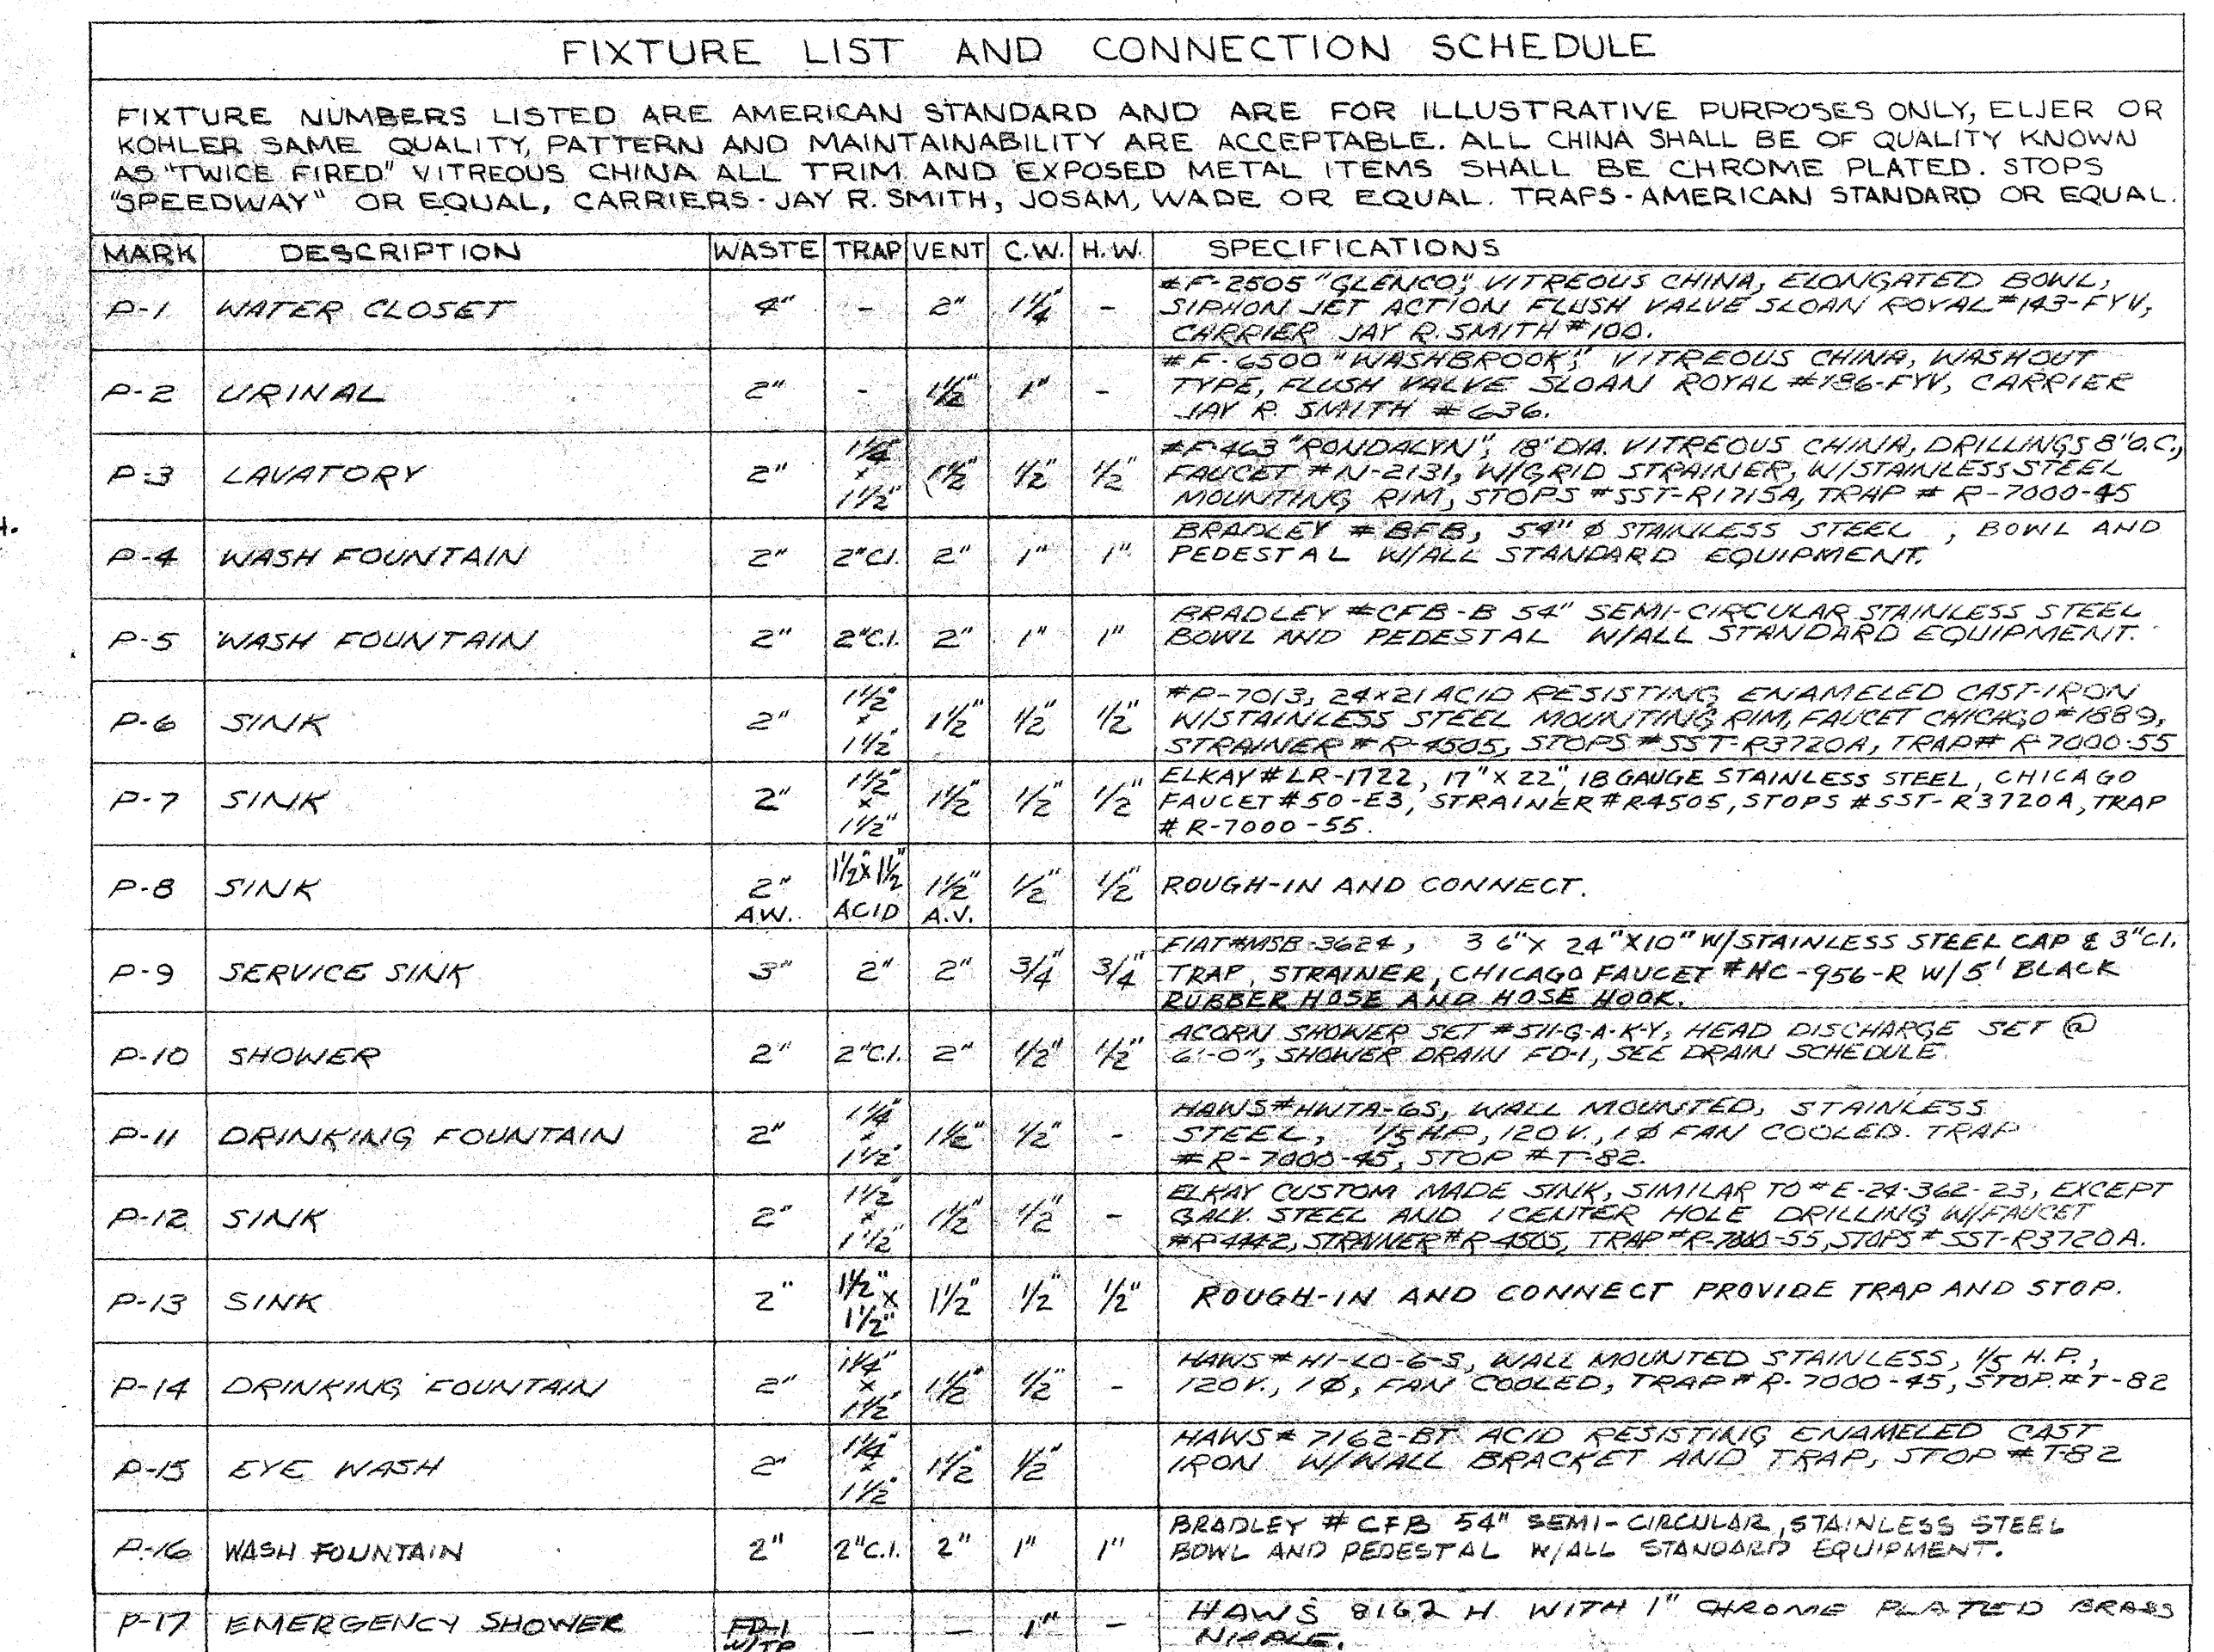 FIXTURE LIST AND CONNECTION SCHEDULE
FIXTURE NUMBERS LISTED ARE AMERICAN STANDARD AND ARE FOR ILLUSTRATIVE PURPOSES ONLY, ELJER OR
KOHLER SAME QUALITY, PATTERN AND MAINTAINABILITY ARE ACCEPTABLE. ALL CHINA SHALL BE OF QUALITY KNOWN
AS "TWICE FIRED" VITREOUS CHINA ALL TRIM AND EXPOSED METAL ITEMS SHALL BE CHROME PLATED. STOPS
"SPEEDWAY" OR EQUAL, CARRIERS-JAY R. SMITH, JOSAM, WADE OR EQUAL. TRAPS-AMERICAN STANDARD OR EQUAL.
MARK DESCRIPTION WASTE TRAP VENT C.W. H.W. SPECIFICATIONS
P-1 WATER CLOSET 4" - 2" 1¼" -
#F-2505 "GLENCO", VITREOUS CHINA, ELONGATED BOWL,
SIPHON JET ACTION FLUSH VALVE SLOAN ROYAL #143-FYV,
CARRIER JAY R. SMITH #100.
P-2 URINAL 2" - 1½" 1" -
#F-6500 "WASHBROOK", VITREOUS CHINA, WASHOUT
TYPE, FLUSH VALVE SLOAN ROYAL #186-FYV, CARRIER
JAY R. SMITH #636.
P-3 LAVATORY 2" 1¼" x 1½" 1½" ½" ½"
#F-463 "RONDALYN", 18" DIA. VITREOUS CHINA, DRILLINGS 8" O.C.,
FAUCET #N-2131, W/GRID STRAINER, W/STAINLESS STEEL
MOUNTING RIM, STOPS #SST-R1715A, TRAP # R-7000-45
P-4 WASH FOUNTAIN 2" 2"C.I. 2" 1" 1"
BRADLEY # BFB, 54" Ø STAINLESS STEEL , BOWL AND
PEDESTAL W/ALL STANDARD EQUIPMENT.
P-5 WASH FOUNTAIN 2" 2"C.I. 2" 1" 1"
BRADLEY #CFB-B 54" SEMI-CIRCULAR STAINLESS STEEL
BOWL AND PEDESTAL W/ALL STANDARD EQUIPMENT.
P-6 SINK 2" 1½" x 1½" 1½" ½" ½"
#P-7013, 24x21 ACID RESISTING ENAMELED CAST-IRON
W/STAINLESS STEEL MOUNTING RIM, FAUCET CHICAGO #1889,
STRAINER # R-4505, STOPS #SST-R3720A, TRAP# R-7000-55
P-7 SINK 2" 1½" x 1½" 1½" ½" ½"
ELKAY #LR-1722, 17" X 22", 18 GAUGE STAINLESS STEEL, CHICAGO
FAUCET #50-E3, STRAINER #R4505, STOPS #SST-R3720A, TRAP
# R-7000-55.
P-8 SINK 2" AW. 1½ x 1½" ACID 1½" A.V. ½" ½" ROUGH-IN AND CONNECT.
P-9 SERVICE SINK 3" 2" 2" 3/4" 3/4"
FIAT #MSB-3624, 36" X 24" X 10" W/STAINLESS STEEL CAP & 3" C.I.
TRAP, STRAINER, CHICAGO FAUCET #HC-956-R W/5' BLACK
RUBBER HOSE AND HOSE HOOK.
P-10 SHOWER 2" 2"C.I. 2" ½" ½"
ACORN SHOWER SET #511-G-A-K-Y, HEAD DISCHARGE SET @
6'-0", SHOWER DRAIN FD-1, SEE DRAIN SCHEDULE.
P-11 DRINKING FOUNTAIN 2" 1¼" x 1½" 1½" ½" -
HAWS #HWTA-6S, WALL MOUNTED, STAINLESS
STEEL, 1/5 HP, 120 V., 1Ø FAN COOLED. TRAP
#R-7000-45, STOP #T-82.
P-12 SINK 2" 1½" x 1½" 1½" ½" -
ELKAY CUSTOM MADE SINK, SIMILAR TO #E-24-362-23, EXCEPT
GALV. STEEL AND 1 CENTER HOLE DRILLING W/FAUCET
#R-4442, STRAINER #R-4505, TRAP #R-7000-55, STOPS # SST-R3720A.
P-13 SINK 2" 1½" x 1½" 1½" ½" ½" ROUGH-IN AND CONNECT PROVIDE TRAP AND STOP.
P-14 DRINKING FOUNTAIN 2" 1¼" x 1½" 1½" ½" -
HAWS # HI-LO-6-S, WALL MOUNTED STAINLESS, 1/5 H.P.,
120V., 1Ø, FAN COOLED, TRAP #R-7000-45, STOP #T-82
P-15 EYE WASH 2" 1¼" x 1½" 1½" ½"
HAWS # 7162-BT ACID RESISTING ENAMELED CAST
IRON W/WALL BRACKET AND TRAP, STOP #T-82
P-16 WASH FOUNTAIN 2" 2"C.I. 2" 1" 1"
BRADLEY # CFB 54" SEMI-CIRCULAR, STAINLESS STEEL
BOWL AND PEDESTAL W/ALL STANDARD EQUIPMENT.
P-17 EMERGENCY SHOWER FD-1 W/TP - - 1" -
HAWS 8162 H WITH 1" CHROME PLATED BRASS
NIPPLE.